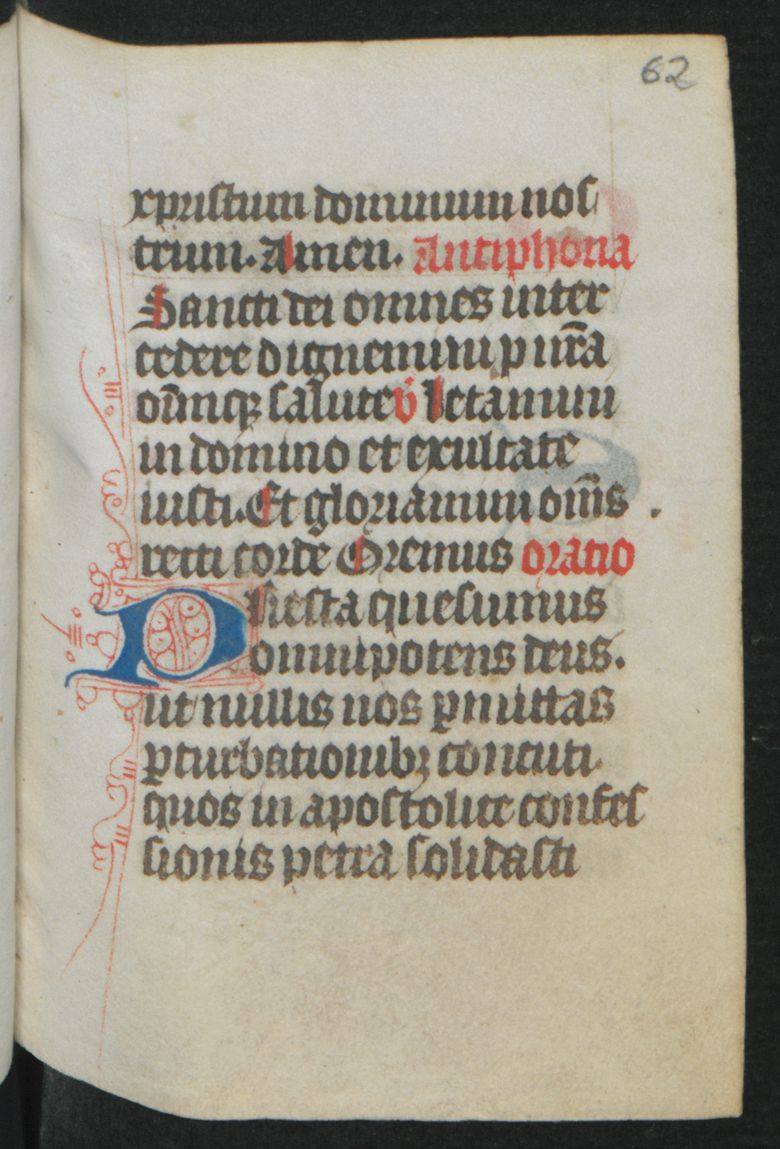 62
xpristum dominum nos
trum. Amen. Antiphona
Sancti dei omnes inter
cedere dignemini p nr̄a
om̄iuqꝫ salute v̇ letamini
in domino et exultate
iusti. Et gloriamini om̄s
recti corde Oremus oratio
Presta quesumus
omnipotens deus.
ut nullis nos ꝑmittas
ꝑturbationibꝫ concuti
quos in apostolice confes
sionis petra solidasti